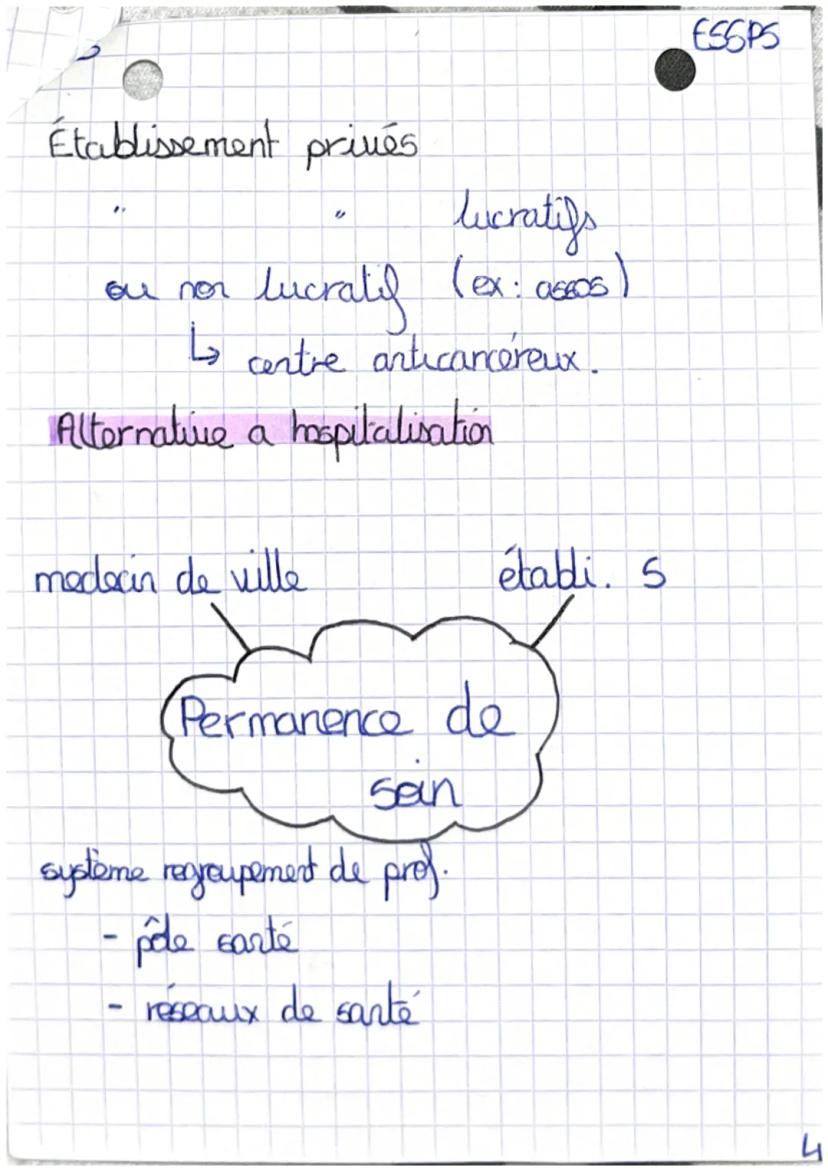 ESSPS
Établissement privés
" " lucratifs
ou non lucratif (ex: assos)
↳ centre anticancéreux.
Alternative a hospitalisation
medecin de ville
établi. S
Permanence de
soin
système regroupement de prof.
- pôle santé
- réseaux de santé
4